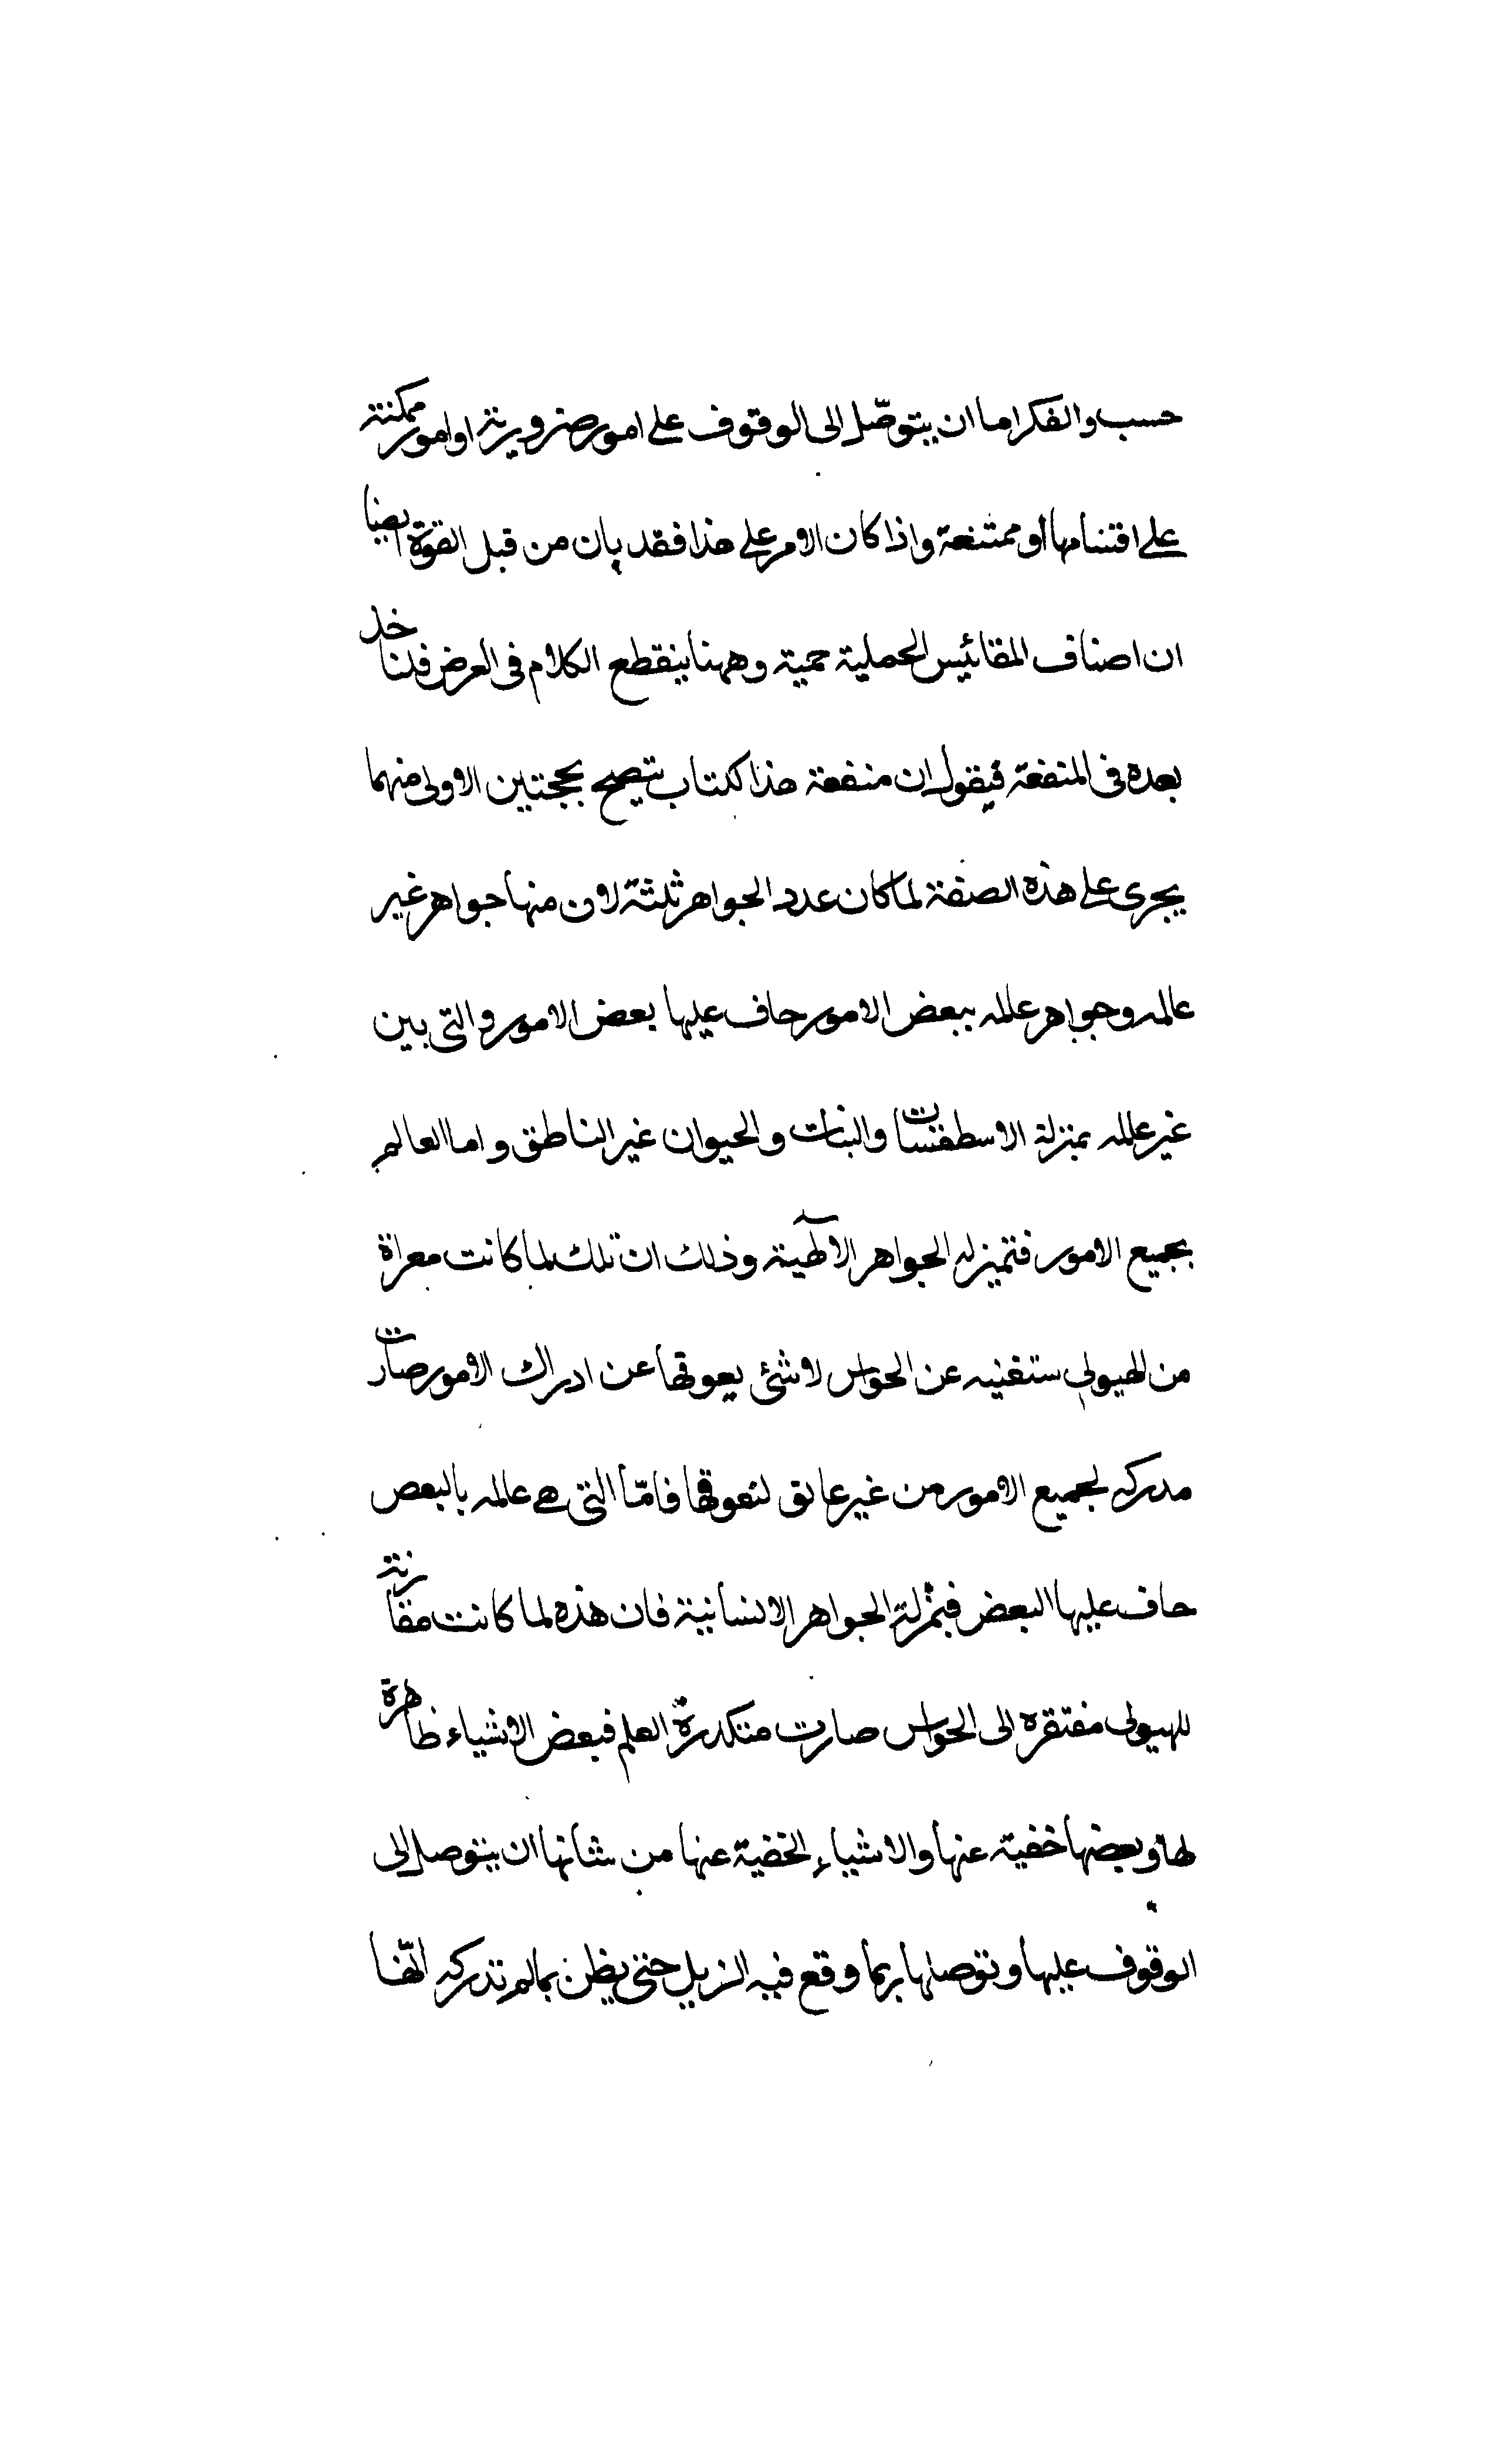 حسب والفكر اما ان يتوصّل الى الوقوف على امور ضرورية او امور ممكنة
على اقتسامها أو ممتنعة واذا كان الامر على هذا فقد بان من قبل القوة ايضا
ان اصناف المقائيس الحملية خمية وههنا ينقطع الكلام فى العرض فلناخل
بعده فى المنفعة فيقول ان منفعة هذا لكتاب تتصيح بحجتين الاولى منهما
يجرى على هذه الصفة لما كان عدد الجواهر ثلثة لان منها جواهر غير
عالمه وجواهر عالمه ببعض الامور حاف عليها بعض الامور والتى بين
غير عالمه بمنزلة الاسطقسات والنبات والحيوان غير الناطق واما العالم
بجميع الامور فتميزله الجواهر الآلهية وذلك ان تلك لما كانت معراة
من الهيولى ستغنيه عن الحواس لا شئ يعوقها عن ادراك الامور صارت
مدركه لجميع الامور من غير عايق لتعوقها فامّا التى هى عالمه بالبعص
حاف عليها البعض فبمنزلة الجواهر الانسانية فان هذه لما كانت مقارنة
للهيولى مفتقره الى الحواس صارت متكدرة العلم فبعض الاشياء ظاهرة
لها وبعضها خفية عنها والاشياء الخفية عنها من شانها ان يتوصل الى
الوقوف عليها وتوصلها ربما وقع فيه الزيل حتى يظن بمالم تدركه انّها